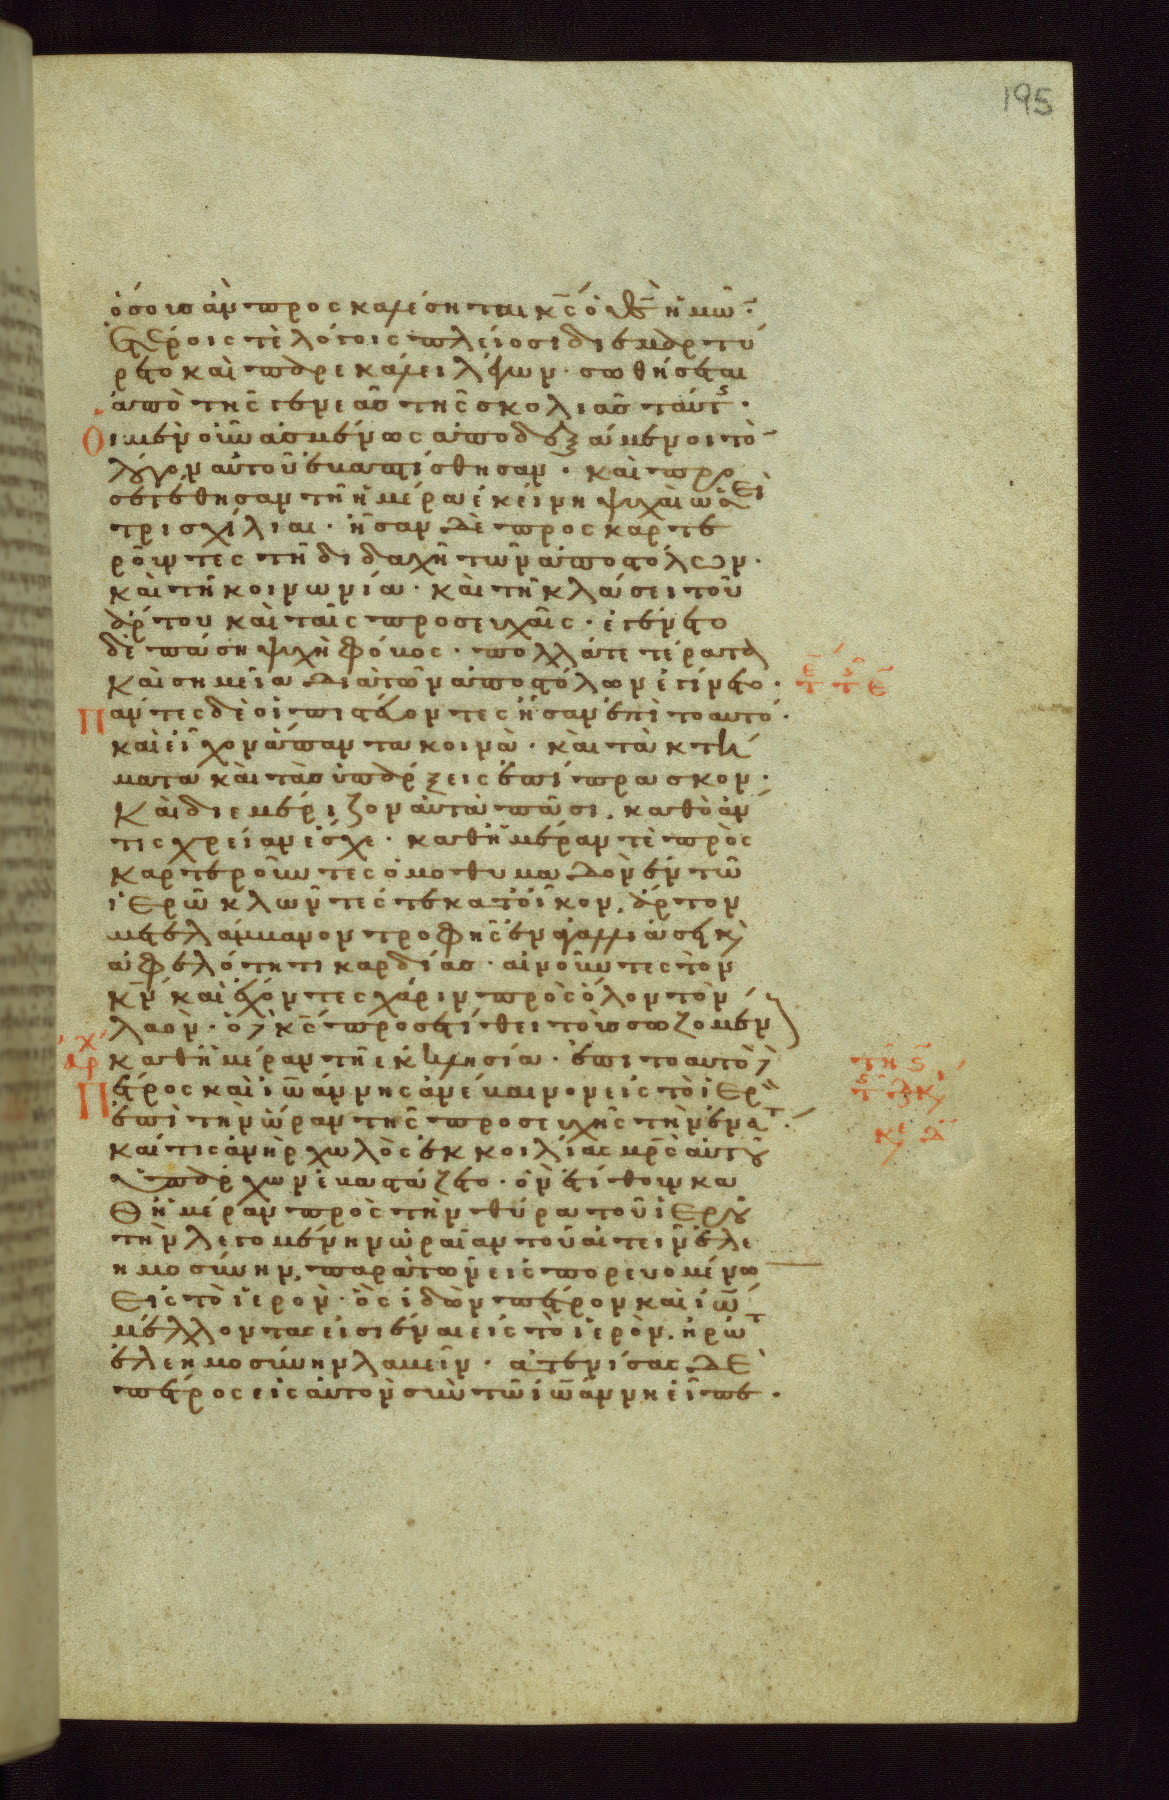 195
ὅσους ἂν προσκαλέσηται κ̅ς̅ ὁ θ̅ς̅ ἡμῶ̅·
ἑτέροις τὲ λόγοις πλείοσι διεμαρτύ
ρετο καὶ παρεκάλει λέγων· σώθητε
ἀπὸ τῆς γενεᾶς τῆς σκολιᾶς ταύτ·
Οἱ μὲν οὖν ἀσμένως ἀποδεξάμενοι τὸ̅
λόγον αὐτοῦ ἐβαπτίσθησαν· καὶ προ
σετέθησαν τῆ ἡμέρα ἐκείνη ψυχαὶ ὡσεὶ
τρισχίλιαι· ἦσαν δὲ προσκαρτε
ροῦντες τῆ διδαχῆ τῶν ἀποστόλων·
καὶ τῆ κοινωνία· καὶ τῆ κλάσει τοῦ
ἄρτου καὶ ταῖς προσευχαῖς· ἐγένετο
δὲ πάση ψυχῆ φόβος· πολλά τε τέρατα
καὶ σημεῖα διὰ τῶν ἀποστόλων ἐγίνετο·
Πάντες δὲ οἱ πιστεύοντες ἦσαν ἐπὶ τὸ αυτό·
καὶ εἶχον ἅπαντα κοινὰ· καὶ τὰ κτή
ματα καὶ τὰς ὑπάρξεις ἐπίπρασκον·
Καὶ διεμέριζον αὐτὰ πᾶσι, καθὸ ἄν
τις χρείαν εἶχε· καθημέραν τὲ προσ
καρτεροῦντες ὁμοθυμαδὸν ἐν τῶ
ἱερῶ κλῶντές τε κατ' οἶκον, ἄρτον
μετελάμβανον τροφῆς ἐν ἀγαλλιάσει κ
ἀφελότητι καρδίας· αἰνοῦντες τὸν
κ̅ν̅ καὶ ἔχοντες χάριν πρὸς ὅλον τὸν
λαόν· ὁ δὲ κ̅ς̅ προσετίθει τοὺς σωζομέν
καθημέραν τῆ ἐκκλησία· ἐπιτοαυτὸ δὲ
Πέτρος καὶ ἰω̅άννης ἀνέβαινον εἰς τὸ ἱερ
ἐπὶ τὴν ὥραν τῆς προσευχῆς τὴν ἐνατ·
καί τις ἀνὴρ χωλὸς ἐκ κοιλίας μρ̅ς αὐτοῦ
ὑπάρχων ἐβαστάζετο· ὃν ἐτίθουν κα
θημέραν πρὸς τὴν θύραν τοῦ ἱεροῦ
τὴν λεγομένην ὡραίαν τοῦ αἰτεῖν ἐλε
ημοσύνην, παρὰ τῶν εἰσπορευομένω
εἰς τὸ ἱερόν· ὃς ἰδὼν πέτρον καὶ ἰω̅
μέλλοντας εἰσιέναι εἰς τὸ ἱερὸν, ἠρώτ
ἐλεημοσύνην λαβεῖν· ἀτενίσας δὲ
πέτρος εἰς αὐτὸν σὺν τῶ ἰω̅άννη εἶπε·